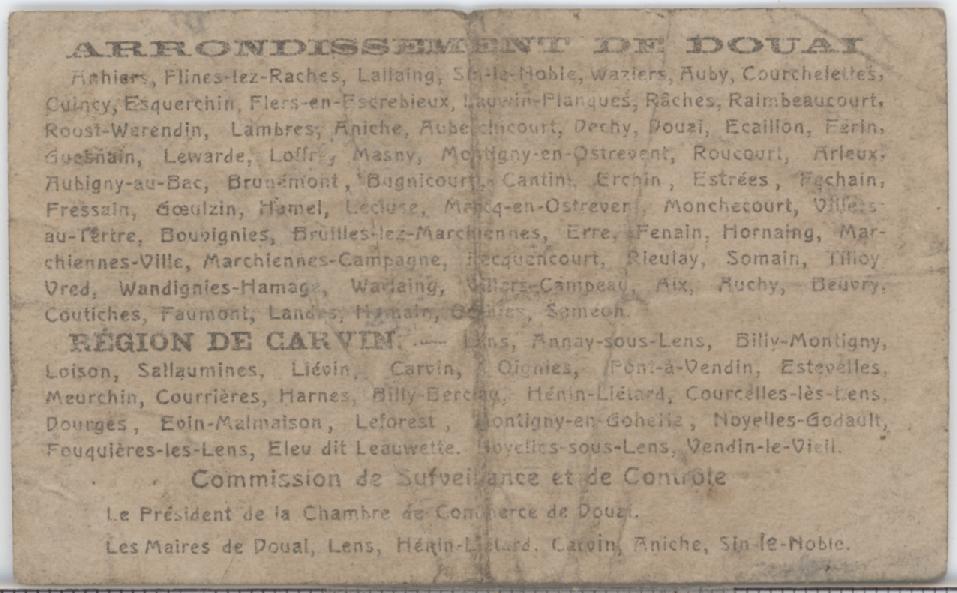 ARRONDISSEMENT DE DOUAI
Anhiers, Flines-lez-Raches, Lallaing, Sin-le-Noble, Waziers, Auby, Courchelettes,
Cuincy, Esquerchin, Flers-en-Escrebieux, Lauwin-Planques, Râches, Raimbeaucourt,
Roost-Warendin, Lambres, Aniche, Auberchicourt, Dechy, Douai, Ecaillon, Férin,
Guesnain, Lewarde, Loffre, Masny, Montigny-en-Ostrevent, Roucourt, Arleux,
Aubigny-au-Bac, Brunémont, Bugnicourt, Cantin, Erchin, Estrées, Féchain,
Fressain, Gœulzin, Hamel, Lécluse, Marcq-en-Ostrevent, Monchecourt, Villers-
au-Tertre, Bouvignies, Bruilles-lez-Marchiennes, Erre, Fenain, Hornaing, Mar-
chiennes-Ville, Marchiennes-Campagne, Rieulay, Somain, Tilloy
Vred, Wandignies-Hamage, Warlaing, Villers-Campeau, Aix, Auchy, Beuvry,
Coutiches, Faumont, Landas, Saméon.
RÉGION DE CARVIN. — Lens, Annay-sous-Lens, Billy-Montigny,
Loison, Sallaumines, Liévin, Carvin, Oignies, Pont-à-Vendin, Estevelles,
Meurchin, Courrières, Harnes, Billy-Berclau, Hénin-Liétard, Courcelles-lès-Lens,
Dourges, Evin-Malmaison, Leforest, Montigny-en-Gohelle, Noyelles-Godault,
Fouquières-les-Lens, Eleu dit Leauwette. Noyelles-sous-Lens, Vendin-le-Vieil.
Commission de Surveillance et de Contrôle
Le Président de la Chambre de Commerce de Douai.
Les Maires de Douai, Lens, Hénin-Liétard. Carvin, Aniche, Sin-le-Noble.